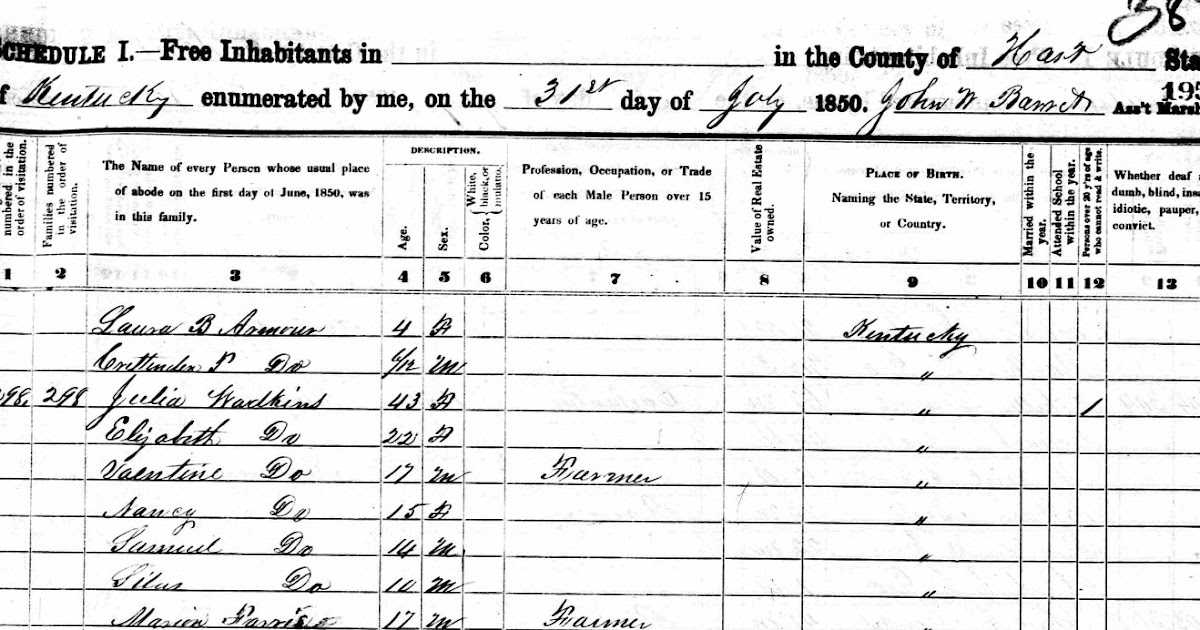 38
SCHEDULE I.—Free Inhabitants in in the County of Hart Sta
f Kentucky enumerated by me, on the 31st day of July 1850. John W Ass't Marsh
195
DESCRIPTION.
numbered in the order of visitation.
Families numbered in the order of visitation.
The Name of every Person whose usual place of abode on the first day of June, 1850, was in this family.
Age.
Sex.
Color, { White, black, or mulatto.
Profession, Occupation, or Trade of each Male Person over 15 years of age.
Value of Real Estate owned.
PLACE OF BIRTH. Naming the State, Territory, or Country.
Married within the year.
Attended School within the year.
Persons over 20 y'rs of age who cannot read & write.
Whether deaf dumb, blind, insa idiotic, pauper, convict.
1 2 3 4 5 6 7 8 9 10 11 12 13
Laura B Armour 4 F Kentucky
Crittenden P Do 6/12 m "
298 298 Julia Wadkins 43 F " 1
Elizabeth Do 22 F "
Valentine Do 17 m Farmer "
Nancy Do 15 F "
Samuel Do 14 m "
Silus Do 10 m "
Marion 17 m Farmer "